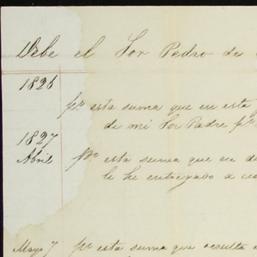 Debe el Sor Pedro de
1826
pr. esta suma que en esta
de mi Sor Padre pr.
1827
Abril por esta suma que en di
le he entregado a
Mayo 7 pr. esta suma que resulta